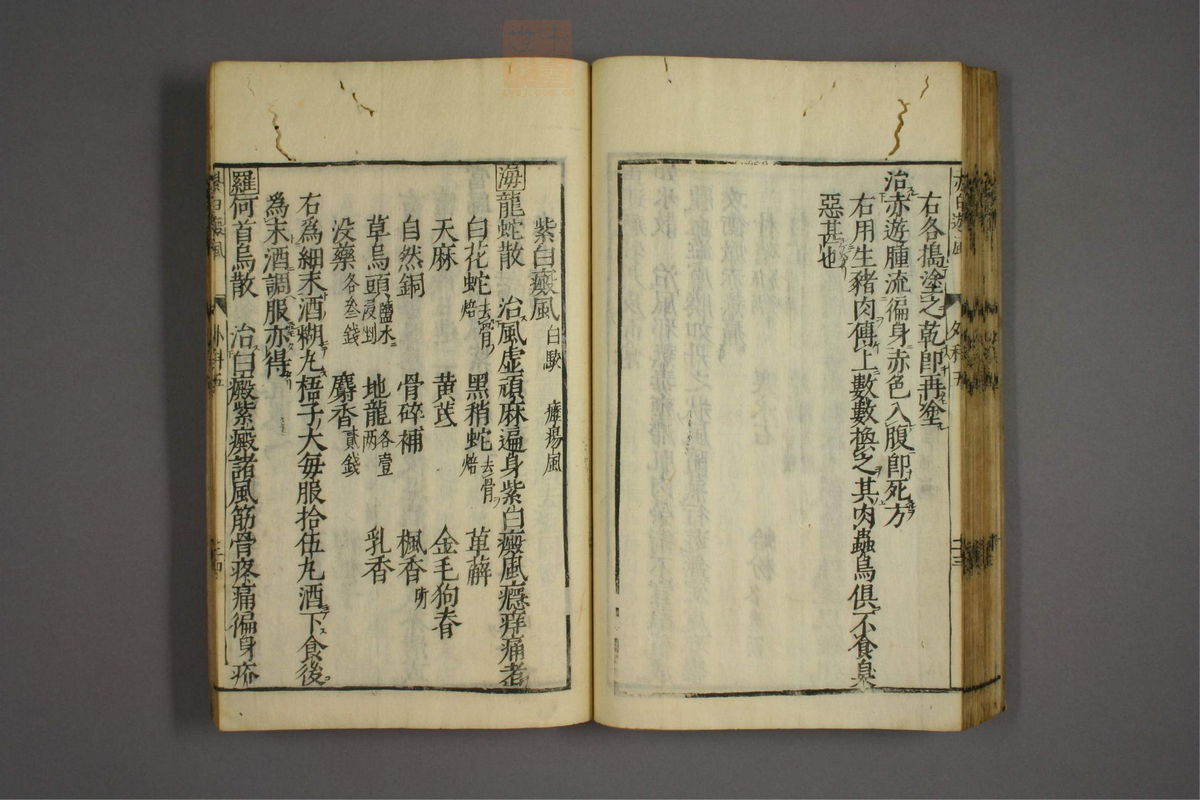 右各搗塗之乾卽再塗
治赤遊腫流徧身赤色入腹卽死方
右用生豬肉傅上數數換之其肉蟲鳥俱不食臭
惡甚也
紫白癜風 白駁 癧瘍風
海龍蛇散 治風虛頑麻遍身紫白癜風癮痒痛者
白花蛇焙去骨 黑稍蛇焙去骨 萆薢
天麻 黃芪 金毛狗脊
自然銅 骨碎補 楓香
草烏頭鹽水浸剉 地龍各壹兩 乳香
没藥各叁錢 麝香貳錢
右爲細末酒糊丸梧子大每服拾伍丸酒下食後
爲末酒調服亦得
羅何首烏散 治白癜紫癜諸風筋骨疼痛徧身疥